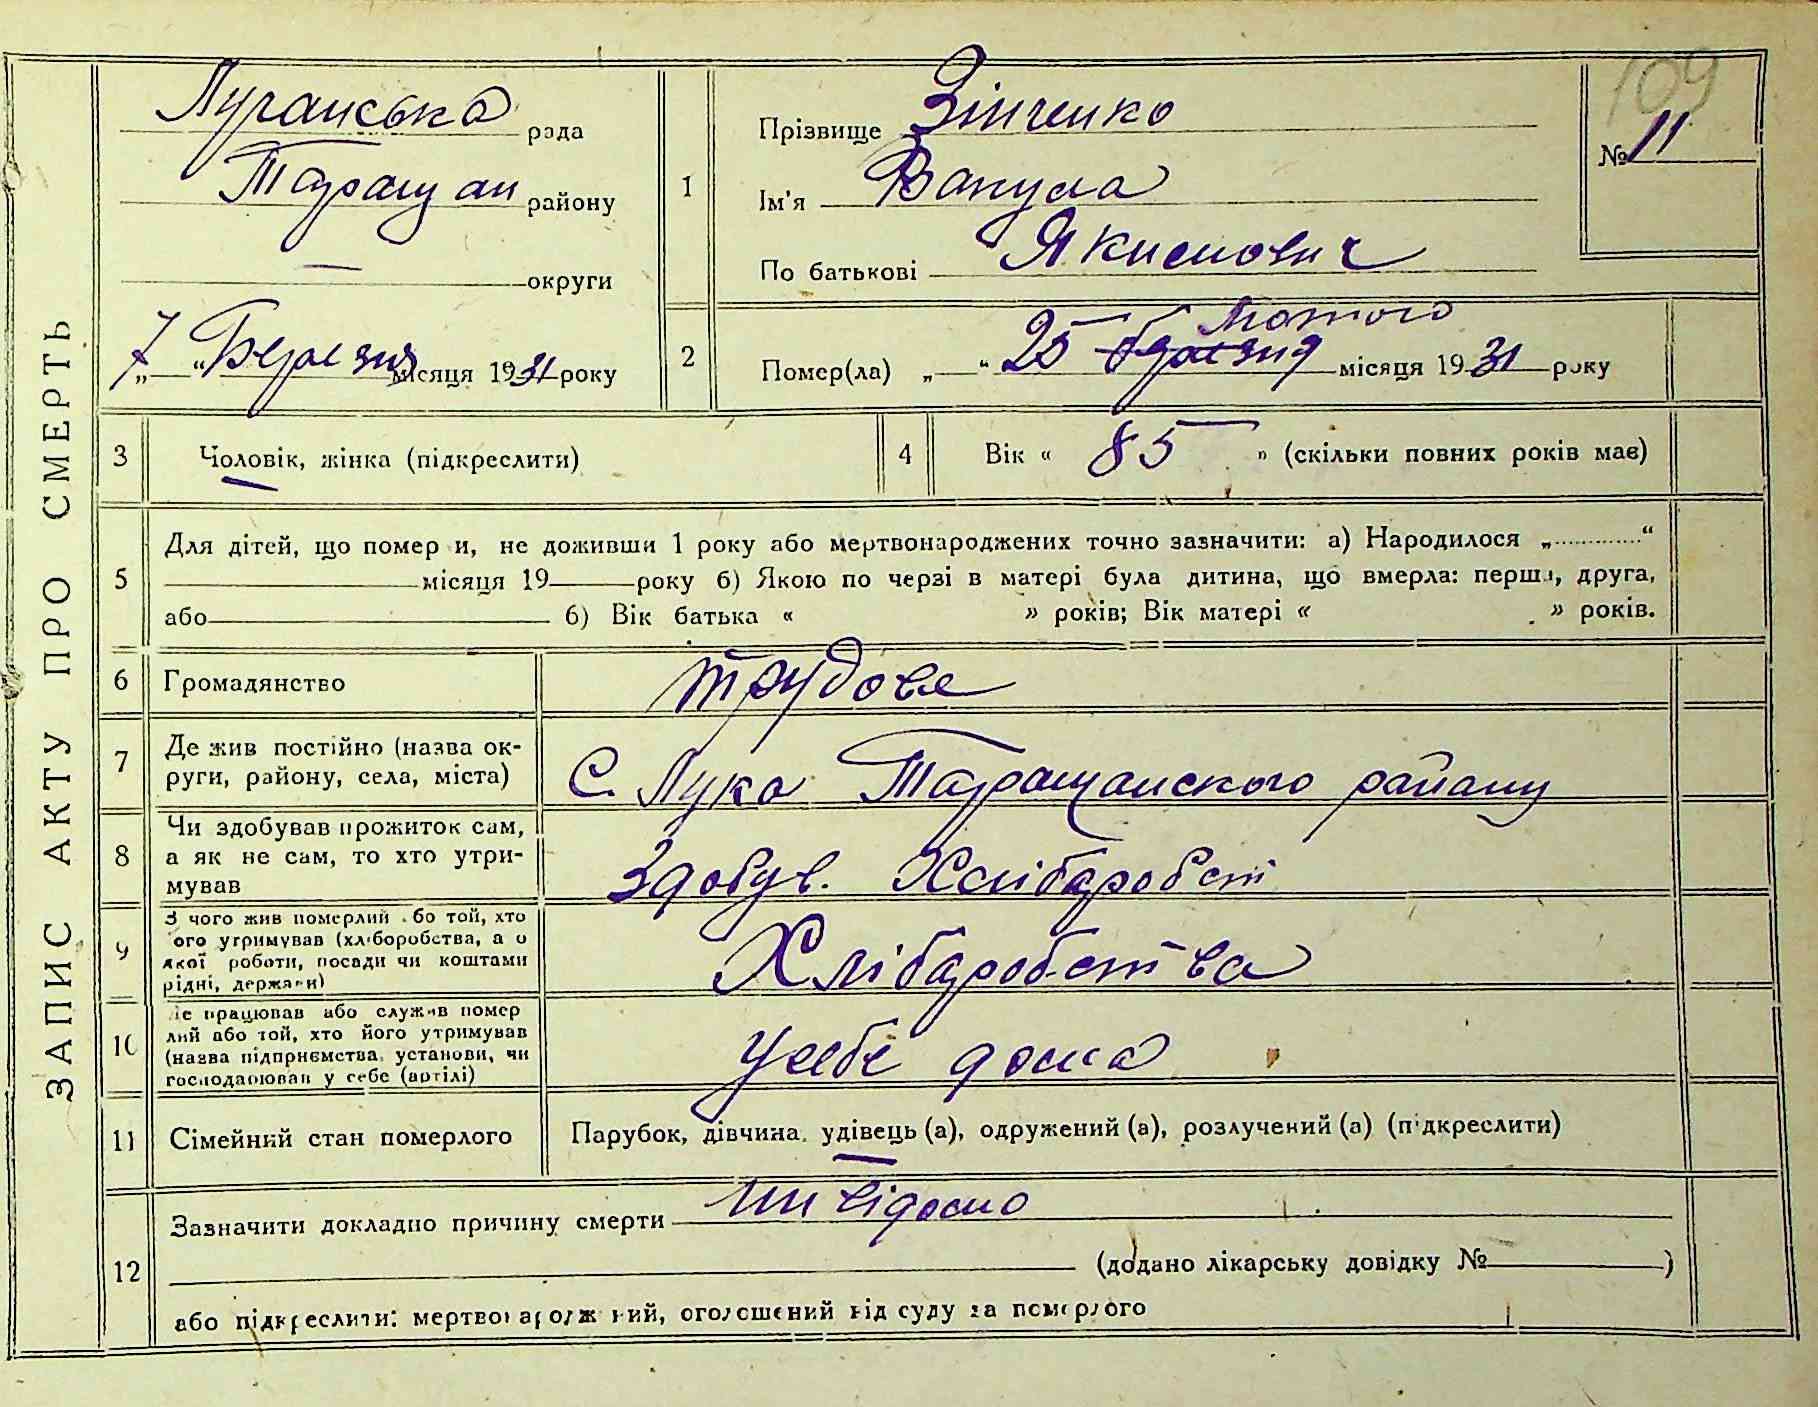 ЗАПИС АКТУ ПРО СМЕРТЬ
Лучанська рада
Таращан району
— округи
„7“ Березня місяця 1931 року
109
№ 11
1
Прізвище Зінченко
Ім'я Вакула
По батькові Якимович
2
Помер(ла) „ “ 25 березня Лютого місяця 1931 року
3
Чоловік, жінка (підкреслити)
4
Вік « 85 » (скільки повних років має)
5
Для дітей, що помер и, не доживши 1 року або мертвонароджених точно зазначити: а) Народилося „............“
місяця 19 року б) Якою по черзі в матері була дитина, що вмерла: перша, друга,
або б) Вік батька « » років; Вік матері « » років.
6
Громадянство
трудове
7
Де жив постійно (назва ок-
руги, району, села, міста)
С. Лука Таращанского району
8
Чи здобував прожиток сам,
а як не сам, то хто утри-
мував
Здобув. Хлібаробст
9
З чого жив померлий або той, хто
ого утримував (хліборобства, а о
якої роботи, посади чи коштами
рідні, держави)
Хлібаробства
10
е працював або служив помер
лий або той, хто його утримував
(назва підприємства, установи, чи
господарював у себе (артілі)
усебе дома
11
Сімейний стан померлого
Парубок, дівчина, удівець (а), одружений (а), розлучений (а) (підкреслити)
12
Зазначити докладно причину смерти нивідомо
(додано лікарську довідку № )
або підкреслити: мертвонароджений, оголошений від суду за померлого